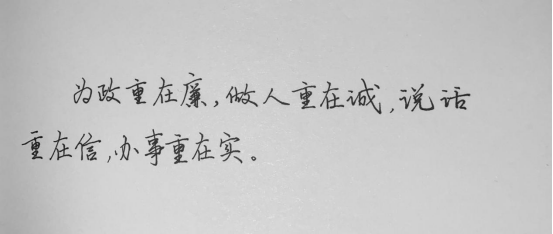 为政重在廉,做人重在诚,说话
重在信,办事重在实。